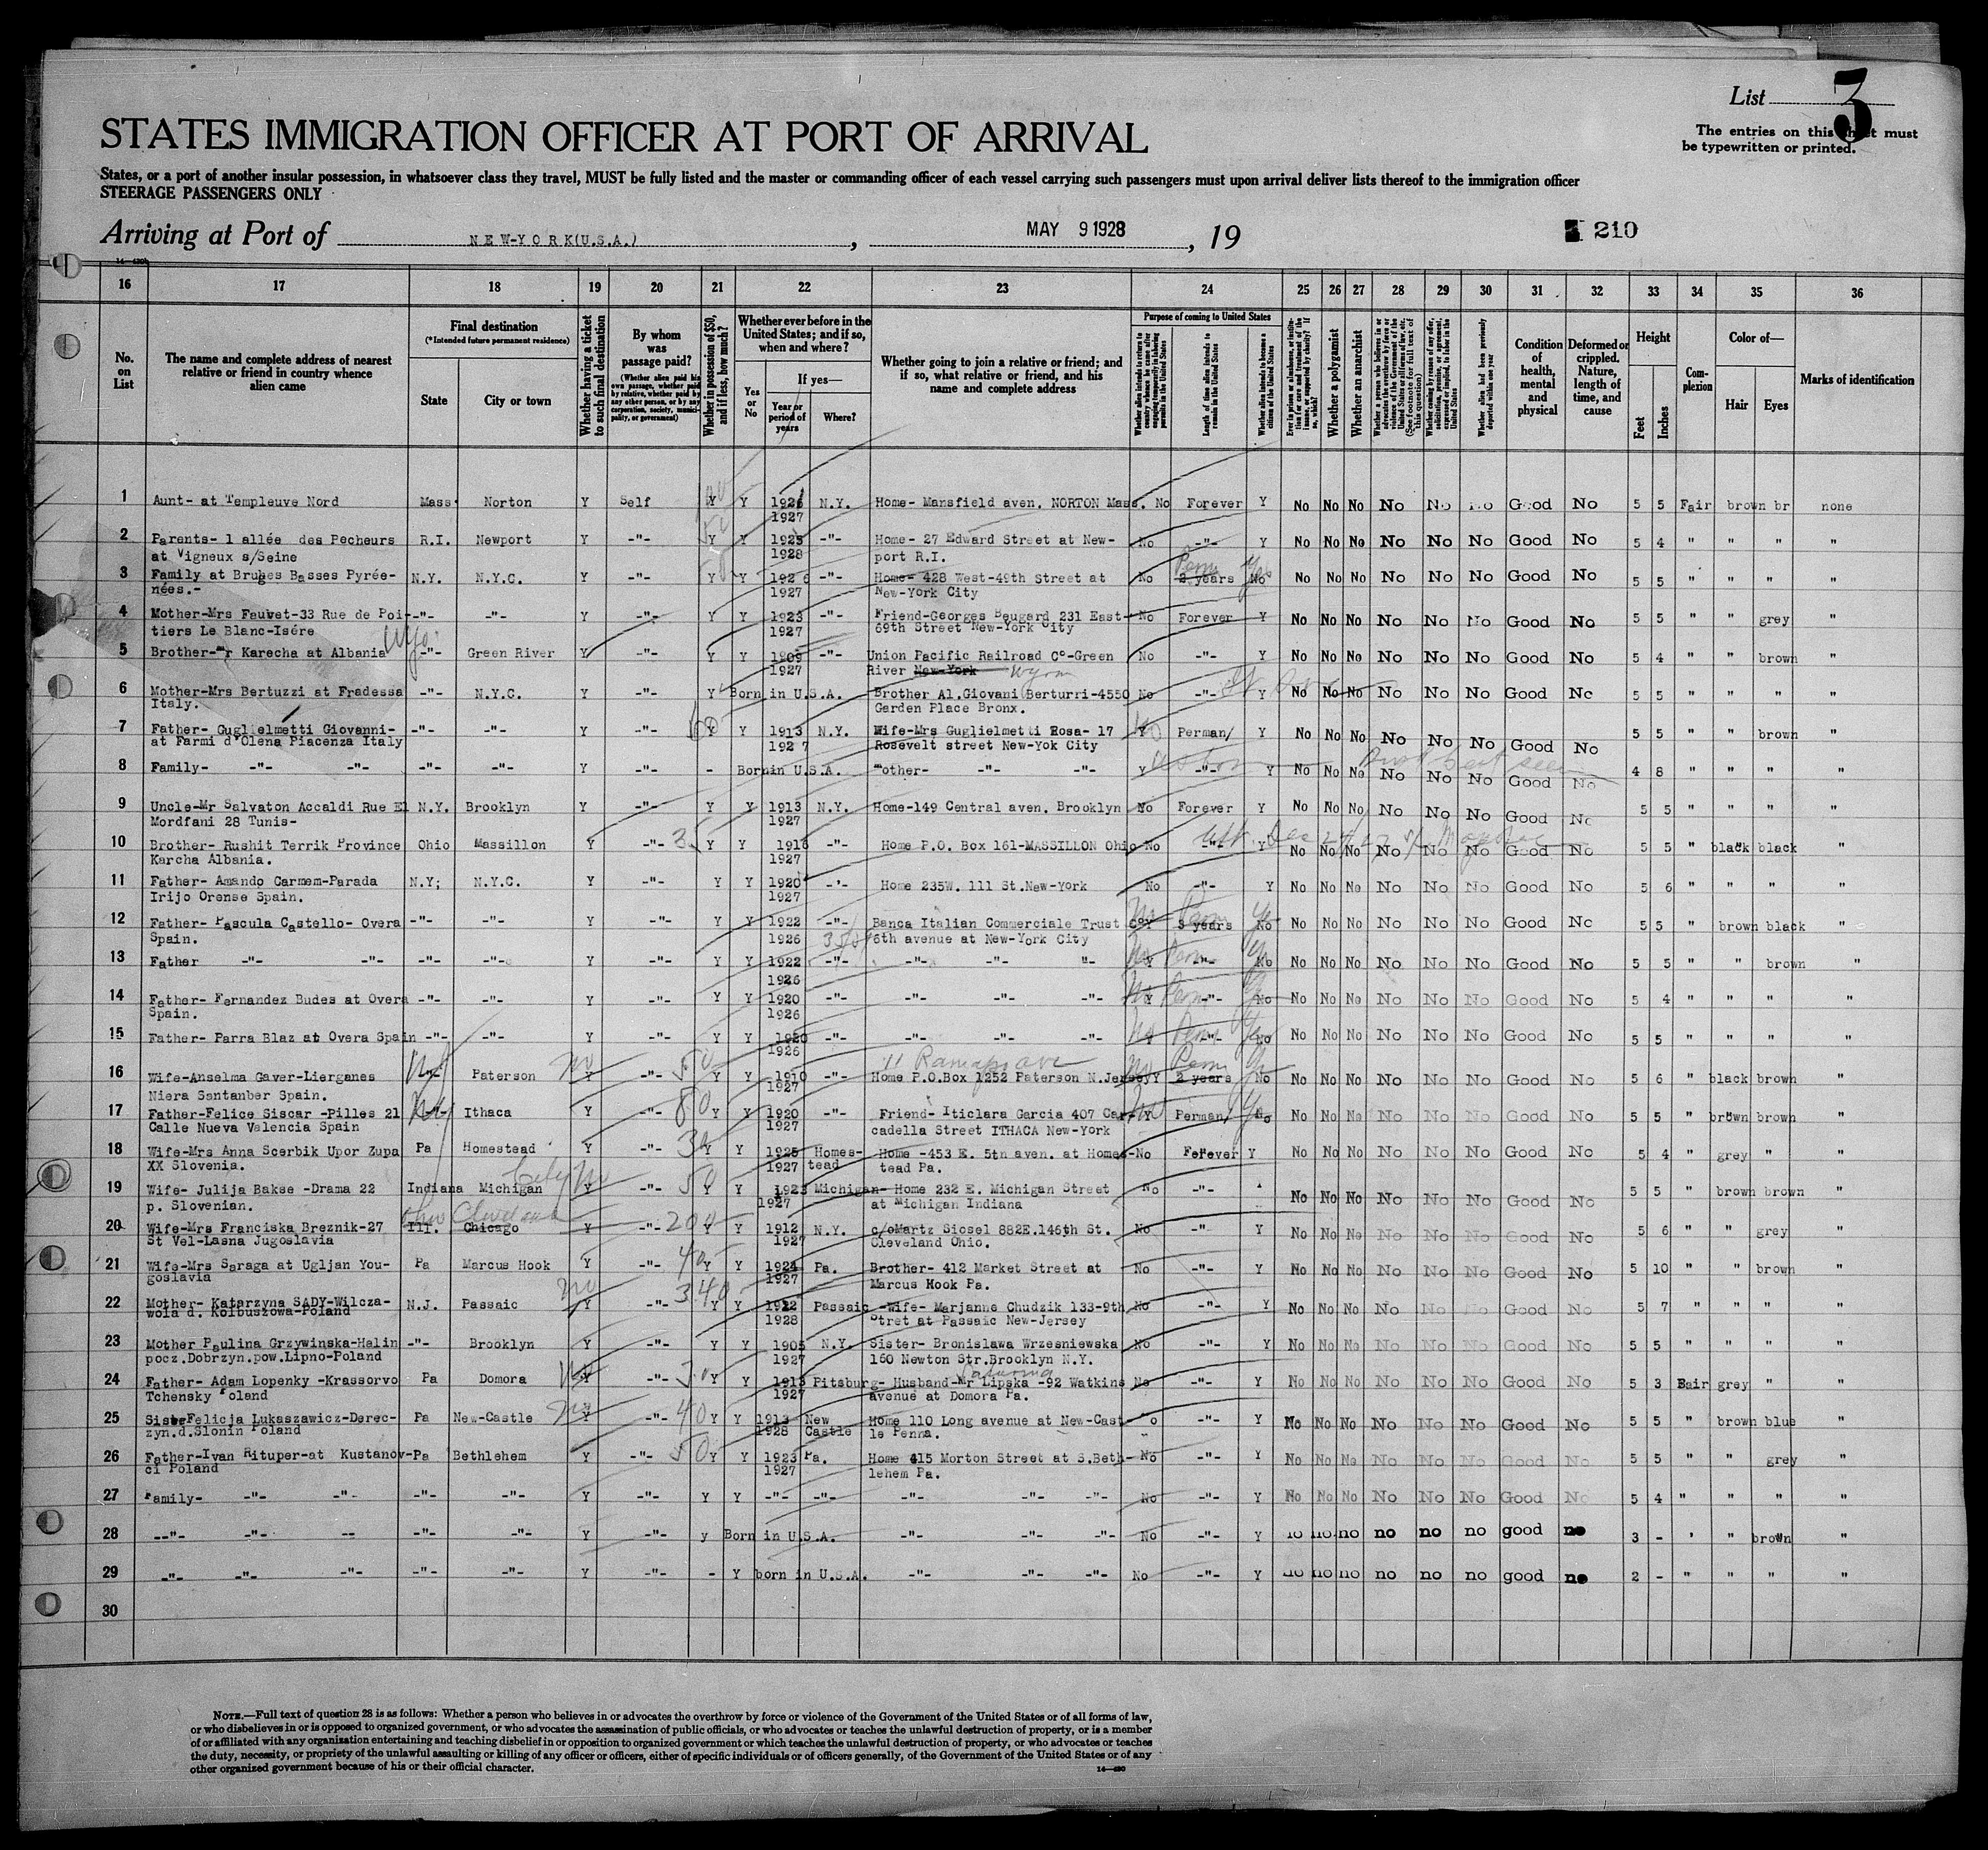 List 3
The entries on this sheet must
be typewritten or printed.
STATES IMMIGRATION OFFICER AT PORT OF ARRIVAL
States, or a port of another insular possession, in whatsoever class they travel, MUST be fully listed and the master or commanding officer of each vessel carrying such passengers must upon arrival deliver lists thereof to the immigration officer
STEERAGE PASSENGERS ONLY
Arriving at Port of NEW-YORK(U.S.A.), MAY 9 1928, 19
210
16 17 18 19 20 21 22 23 24 25 26 27 28 29 30 31 32 33 34 35 36
No. on List
The name and complete address of nearest relative or friend in country whence alien came
Final destination
(*Intended future permanent residence)
State
City or town
Whether having a ticket to such final destination
By whom was passage paid?
(Whether alien paid his own passage, whether paid by relative, whether paid by any other person, or by any corporation, society, municipality, or government)
Whether in possession of $50, and if less, how much?
Whether ever before in the United States; and if so, when and where?
Yes or No
If yes—
Year or period of years
Where?
Whether going to join a relative or friend; and if so, what relative or friend, and his name and complete address
Purpose of coming to United States
Length of time alien intends to remain in the United States
Whether alien intends to become a citizen of the United States
Whether a polygamist
Whether an anarchist
Whether alien had been previously deported within one year
Condition of health, mental and physical
Deformed or crippled. Nature, length of time, and cause
Height
Feet
Inches
Complexion
Color of—
Hair
Eyes
Marks of identification
1 Aunt- at Templeuve Nord Mass Norton Y Self Y Y 1926 N.Y. Home- Mansfield aven. NORTON Mass. No Forever Y No No No No No No Good No 5 5 Fair brown br none
1927
2 Parents- 1 allée des Pecheurs R.I. Newport Y -"- Y Y 1925 -"- Home- 27 Edward Street at New- No -"- Y No No No No No No Good No 5 4 " " " "
at Vigneux s/Seine 1928 port R.I.
3 Family at Bruges Basses Pyrée- N.Y. N.Y.C. Y -"- Y Y 1926 -"- Home- 428 West-49th Street at No 2 years Perm No Yes No No No No No No Good No 5 5 " " " "
nées.- 1927 New-York City
4 Mother-Mrs Fauvet-33 Rue de Poi- -"- -"- Y -"- Y Y 1923 -"- Friend-Georges Beugard 231 East No Forever Y No No No No No No Good No 5 5 " " grey "
tiers Le Blanc-Isére 1927 69th Street New-York City
5 Brother-Mr Karecha at Albania -"- Wyo. Green River Y -"- Y Y 1909 -"- Union Pacific Railroad C°-Green No -"- Y No No No No No No Good No 5 4 " " brown "
1927 River New-York Wyom
6 Mother-Mrs Bertuzzi at Fradessa -"- N.Y.C. Y -"- Y Born in U.S.A. Brother Al.Giovani Berturri-4550 No -"- Y No No No No No No Good No 5 5 " " " "
Italy. Garden Place Bronx.
7 Father- Guglielmetti Giovanni- -"- -"- Y -"- Y Y 1913 N.Y. Wife-Mrs Guglielmetti Rosa- 17 Y Perman/ Y No No No No No No Good No 5 5 " " brown "
at Farmi d'Olena Piacenza Italy 1927 Rosevelt street New-Yok City
8 Family- -"- -"- -"- -"- Y -"- - Born in U.S.A. Mother- -"- -"- Y -"- Y No No No No No No Good No 4 8 " " " "
9 Uncle-Mr Salvaton Accaldi Rue El N.Y. Brooklyn Y -"- Y Y 1913 N.Y. Home-149 Central aven. Brooklyn No Forever Y No No No No No No Good No 5 5 " " " "
Mordfani 28 Tunis- 1927
10 Brother- Rushit Terrik Province Ohio Massillon Y -"- 35 Y Y 1916 -"- Home P.O. Box 161-MASSILLON Ohio No -"- Y No No No No No No Good No 5 5 " black black "
Karcha Albania. 1927
11 Father- Amando Carmem-Parada N.Y; N.Y.C. Y -"- Y Y 1920 -"- Home 235W. 111 St.New-York No -"- Y No No No No No No Good No 5 6 " " " "
Irijo Orense Spain. 1927
12 Father- Pascula Castello- Overa -"- -"- Y -"- Y Y 1922 -"- Banca Italian Commerciale Trust C° Y No 3 years Perm No Yes No No No No No No Good No 5 5 " brown black "
Spain. 1926 6th avenue at New-York City
13 Father -"- -"- -"- -"- Y -"- Y Y 1922 -"- -"- -"- "- Y No -"- Perm No No No No No No No Good No 5 5 " " brown "
1926
14 Father- Fernandez Budes at Overa -"- -"- Y -"- Y Y 1920 -"- -"- -"- -"- Y No -"- Perm No No No No No No No Good No 5 4 " " " "
Spain. 1926
15 Father- Parra Blaz at Overa Spain -"- -"- Y -"- Y Y 1920 -"- -"- -"- -"- Y No -"- Perm No Yes No No No No No No Good No 5 5 " " " "
1926 11 Ramapo ave
16 Wife-Anselma Gaver-Lierganes -"- NJ Paterson Y No -"- 50 Y Y 1910 -"- Home P.O.Box 1252 Paterson N.Jersey Y No 2 years Perm No No No No No No No Good No 5 6 " black brown "
Niera Santanber Spain. 1927
17 Father-Felice Siscar -Pilles 21 Ithaca Y -"- 80 Y Y 1920 -"- Friend- Iticlara Garcia 407 Car- Y No Perman/ No Yes No No No No No No Good No 5 5 " brown brown "
Calle Nueva Valencia Spain 1927 cadella Street ITHACA New-York
18 Wife-Mrs Anna Scerbik Upor Zupa Pa Homestead Y -"- Y Y 1925 Homes- Home -453 E. 5tn aven. at Homes- No Forever Y No No No No No No Good No 5 4 " grey " "
XX Slovenia. 1927 tead tead Pa.
19 Wife- Julija Bakse -Drama 22 Indiana Michigan City Y No -"- 50 Y Y 1923 Michigan- Home 232 E. Michigan Street No -"- No No No No No No Good No 5 5 " brown brown "
p. Slovenian. 1927 at Michigan Indiana
20 Wife-Mrs Franciska Breznik-27 Ill. Ohio Chicago Cleveland Y -"- 200 Y Y 1912 N.Y. c/oMartz Sicsel 882E.146th St. No -"- Y No No No No No No Good No 5 6 " " grey "
St Vel-Lasna Jugoslavia 1927 Cleveland Ohio.
21 Wife-Mrs Saraga at Ugljan You- Pa Marcus Hook Y -"- 40 Y Y 1924 Pa. Brother- 412 Market Street at No -"- Y No No No No No No Good No 5 10 " " brown "
goslavia 1927 Marcus Hook Pa.
22 Mother- Katarzyna SADY-Wilcza- N.J. Passaic Y No -"- 340 Y Y 1912 Passaic -Wife- Marjanne Chudzik 133-9th No -"- Y No No No No No No Good No 5 7 " " " "
wola d. Kolbuszowa-Poland 1928 Stret at Passaic New-Jersey
23 Mother Paulina Grzywinska-Halin -"- Brooklyn Y -"- Y Y 1905 N.Y. Sister- Bronislawa Wrzesniewska No -"- Y No No No No No No Good No 5 5 " " " "
pocz.Dobrzyn.pow.Lipno-Poland 1927 160 Newton Str.Brooklyn N.Y.
24 Father- Adam Lopenky -Krassorvo Pa Domora Y No -"- 30 Y Y 1913 Pitsburg- Husband-Mr Lipska -92 Watkins No -"- Y No No No No No No Good No 5 3 Fair grey " "
Tchensky Poland 1927 avenue at Domora Pa.
25 Siste Felicja Lukaszawicz-Derec- Pa New-Castle Y No -"- 40 Y Y 1913 New Home 110 Long avenue at New-Cast- No -"- Y No No No No No No Good No 5 5 " brown blue "
zyn.d.Slonin Poland 1928 Castle le Penna.
26 Father-Ivan Rituper-at Kustanov- Pa Bethlehem Y -"- 50 Y Y 1923 Pa. Home 415 Morton Street at S.Beth- No -"- Y No No No No No No Good No 5 5 " " grey "
ci Poland 1927 lehem Pa.
27 Family- -"- -"- -"- -"- Y -"- Y Y -"- -"- -"- -"- -"- No -"- Y No No No No No No Good No 5 4 " " " "
28 --"- -"- -- -"- -"- Y -"- y Born in U.S.A. -"- -"- -"- No -"- Y no no no no no no good no 3 - ' " brown "
29 -"- -"- -"- -"- -"- Y -"- - Y born in U.S.A. -"- -"- -"- No -"- Y no no no no no no good no 2 - " " " "
30
NOTE.—Full text of question 28 is as follows: Whether a person who believes in or advocates the overthrow by force or violence of the Government of the United States or of all forms of law,
or who disbelieves in or is opposed to organized government, or who advocates the assassination of public officials, or who advocates or teaches the unlawful destruction of property, or is a member
of or affiliated with any organization entertaining and teaching disbelief in or opposition to organized government or which teaches the unlawful destruction of property, or who advocates or teaches
the duty, necessity, or propriety of the unlawful assaulting or killing of any officer or officers, either of specific individuals or of officers generally, of the Government of the United States or of any
other organized government because of his or their official character.
14—430